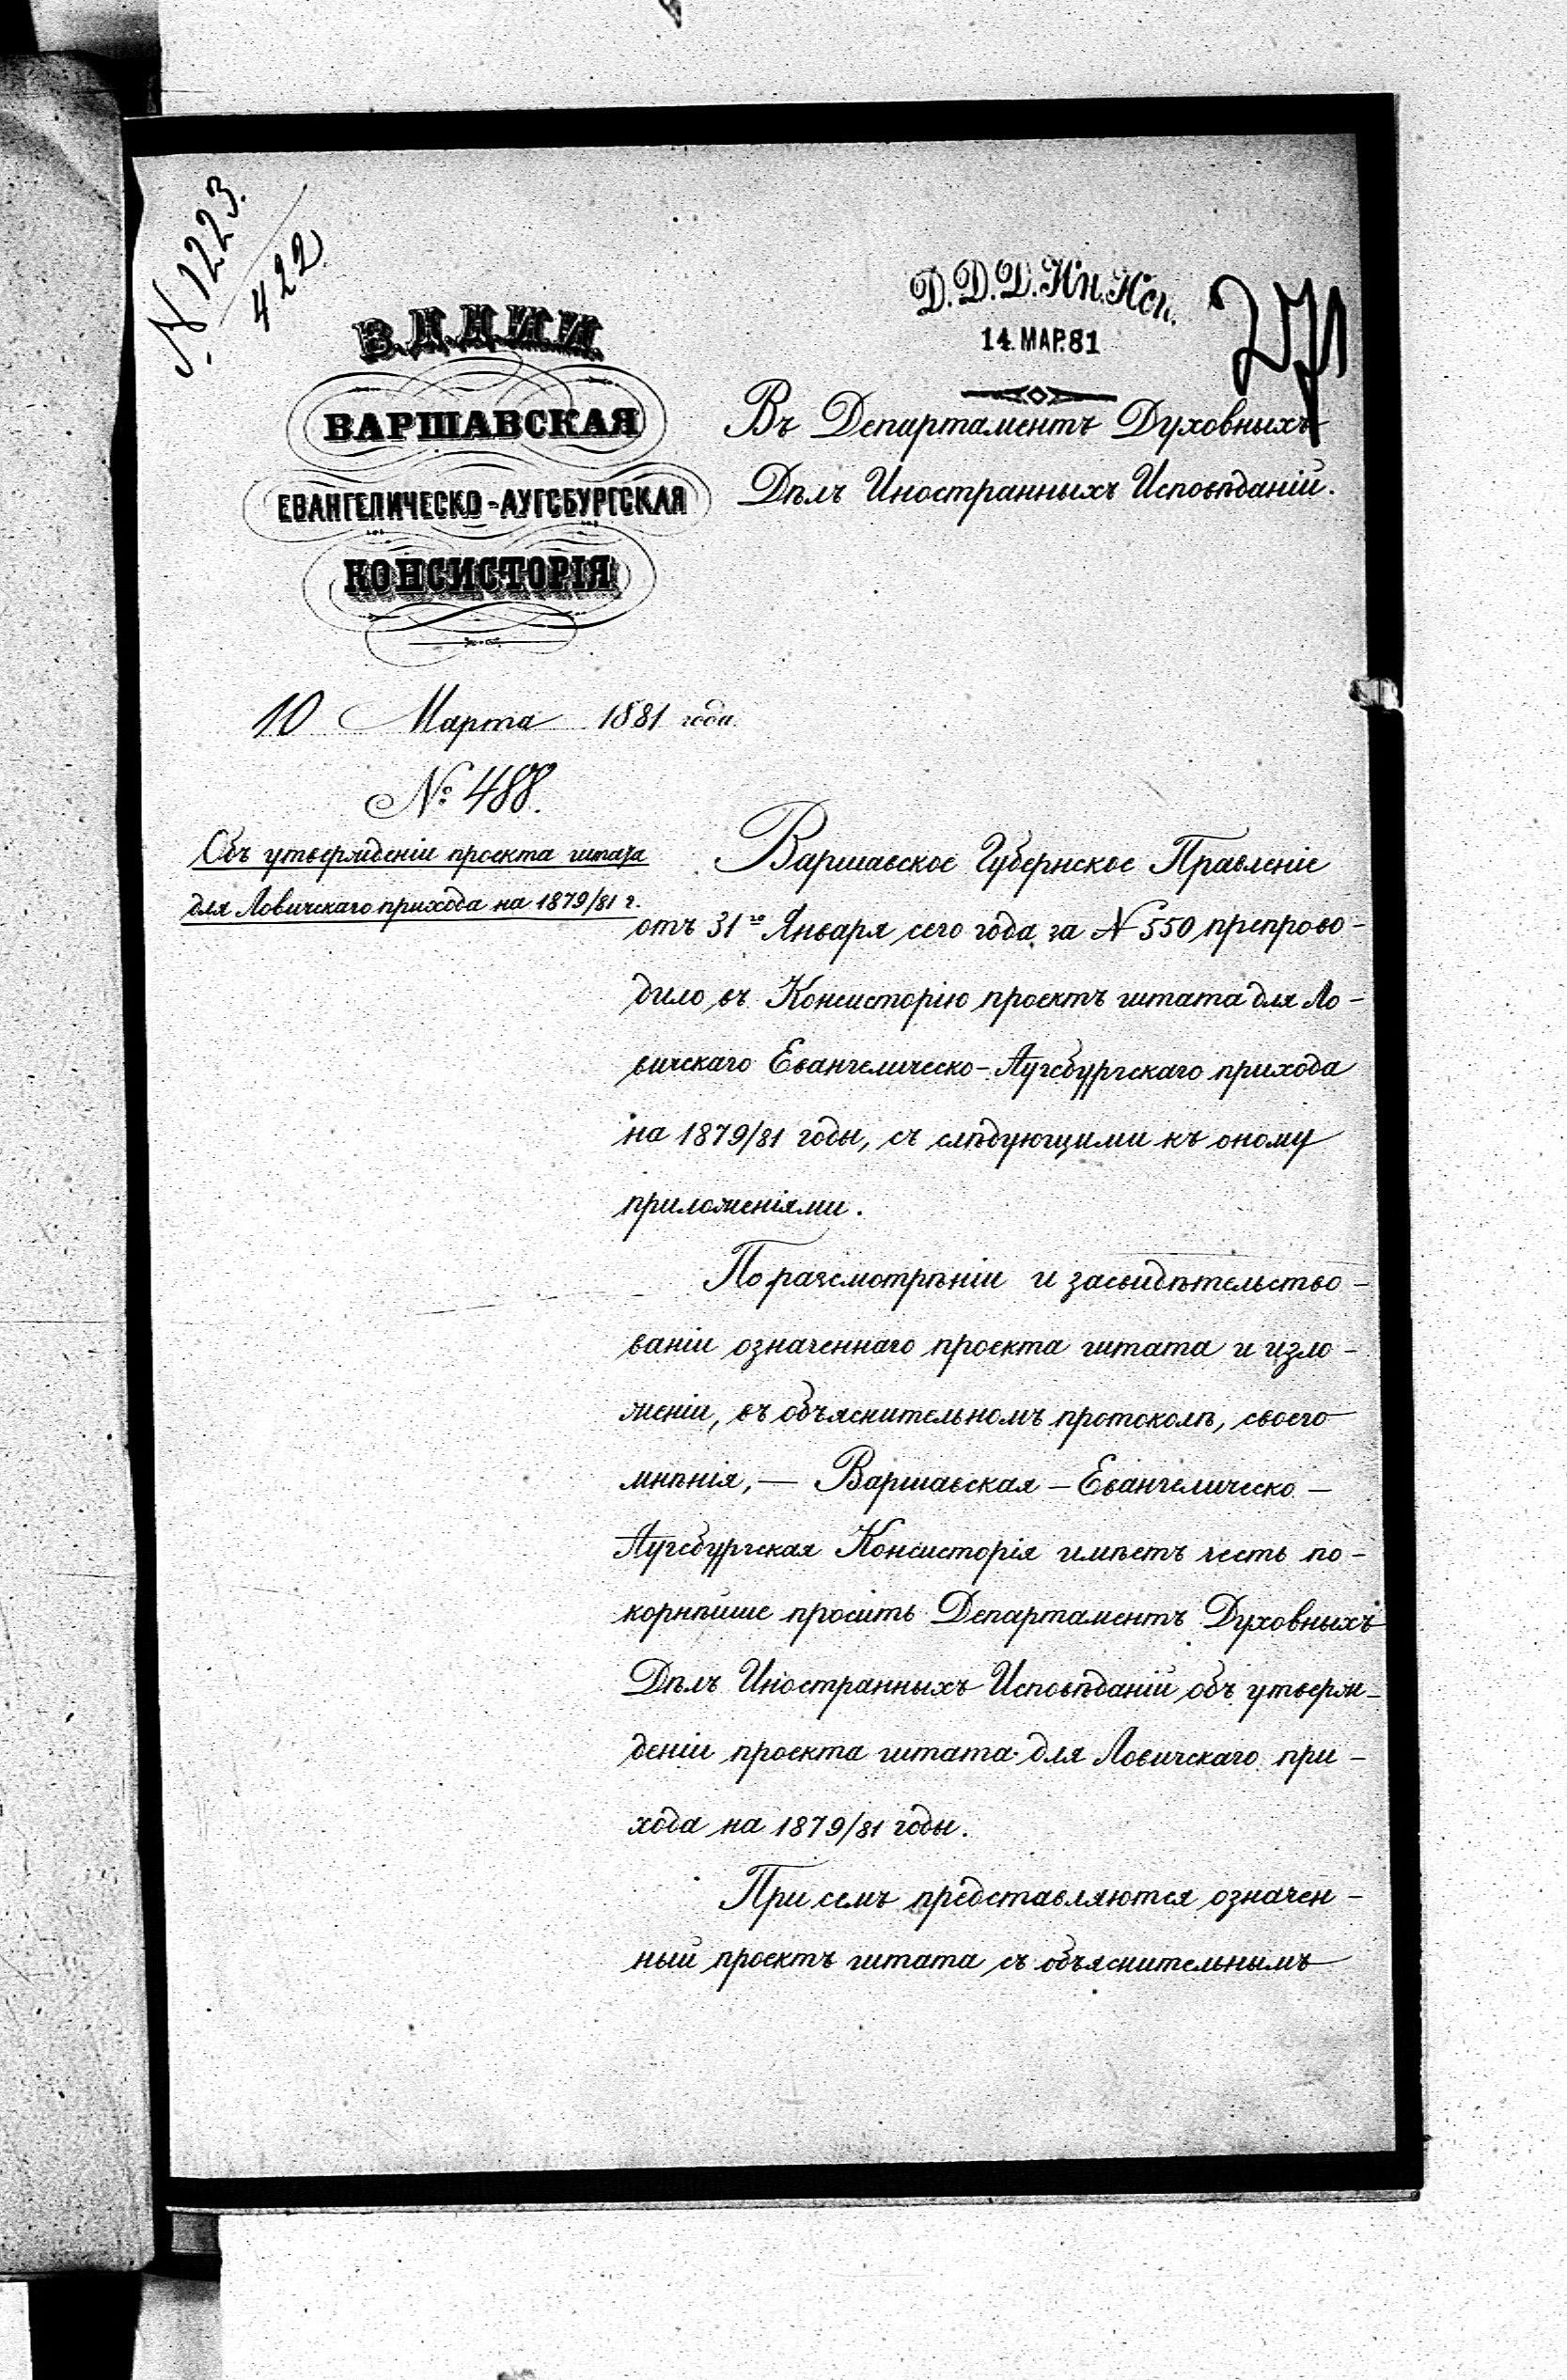 № 1223.
422
В.Д.Д.И.И.
ВАРШАВСКАЯ
ЕВАНГЕЛИЧЕСКО-АУГСБУРГСКАЯ
КОНСИСТОРІЯ
10 Марта 1881 года
№ 488.
Объ утвержденіи проекта штата
для Ловичскаго прихода на 1879/81 г.
Д.Д.Д.Ин.Исп.
14.МАР.81
Въ Департаментъ Духовныхъ
Дѣлъ Иностранныхъ Исповѣданій.
Варшавское Губернское Правленіе
отъ 31го Января сего года за № 550 препрово-
дило въ Консисторію проектъ штата для Ло-
вичскаго Евангелическо-Аугсбургскаго прихода
на 1879/81 годы, съ слѣдующими къ оному
приложеніями.
По разсмотрѣніи и засвидѣтельство-
ваніи означеннаго проекта штата и изло-
женіи, въ объяснительномъ протоколѣ, своего
мнѣнія, — Варшавская – Евангелическо –
Аугсбургская Консисторія имѣетъ честь по-
корнѣйше просить Департаментъ Духовныхъ
Дѣлъ Иностранныхъ Исповѣданій объ утверж-
деніи проекта штата для Ловичскаго при-
хода на 1879/81 годы.
При семъ представляются означен-
ный проектъ штата съ объяснительнымъ